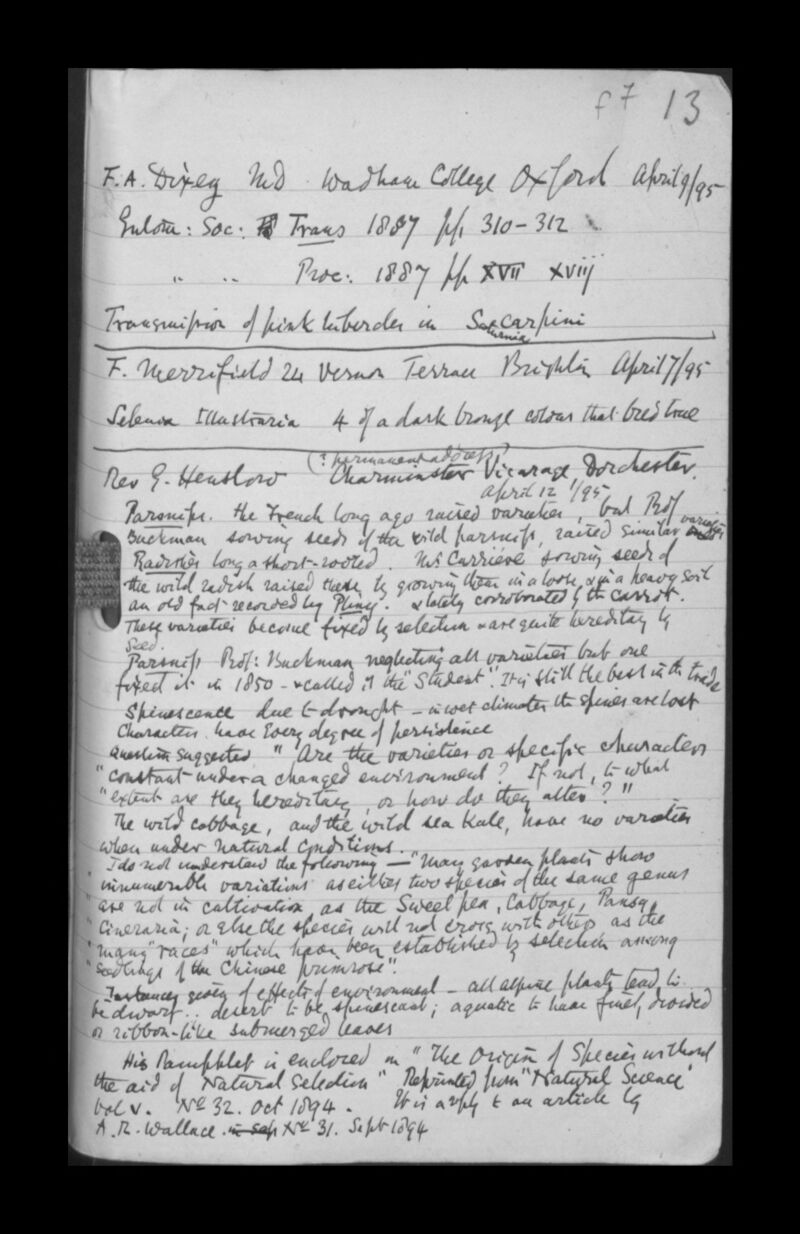 f 7 13
F. A. Dixey MD Wadham College Oxford April 9/95
Entom: Soc: Trans 1887 pp 310-312
" " Proc: 1887 pp XVII XVIII
Transmission of pink tubercles in Saturnia carpini
F. Merrifield 24 Vernon Terrace Brighton April 7/95
Selenia Illustraria 4 of a dark bronze colour that bred true
(? permanent address?)
Rev G. Henslow Charminster Vicarage, Dorchester.
April 12 /95
Parsnips. the French long ago raised varieties, but Prof
Buckman sowing seeds of the wild parsnip, raised similar varieties
Radishes long & short-rooted. Mr Carriére sowing seeds of
the wild radish raised these by growing them in a loose, & in a heavy soil
an old fact recorded by Pliny. & lately corroborated by the carrot.
These varieties become fixed by selection & are quite hereditary by
seed.
Parsnip Prof: Buckman neglecting all varieties but one
fixed it in 1850 - & called it the "Student". It is still the best in the trade
Spinescence due to drought - in wet climates the spines are lost
Characters have every degree of persistence
Question suggested "Are the varieties or specific characters
"constant under a changed environment? If not, to what
"extent are they hereditary, or how do they alter?"
The wild cabbage, and the wild sea kale, have no varieties
when under natural conditions.
I do not understand the following — "Many garden plants show
"innumerable variations as either two species of the same genus
"are not in cultivation as the Sweet pea, Cabbage, Pansy,
"Cineraria; or else the species will not cross with others as the
"many "races" which have been established by selection among
"seedlings of the Chinese primrose".
Instances given of effects of environment - all alpine plants tend to
be dwarf.. desert to be spinescent; aquatic to have finely divided
or ribbon-like submerged leaves
His Pamphlet is enclosed on "The Origin of Species without
the aid of Natural Selection" Reprinted from "Natural Science"
Vol V. No 32. Oct 1894. It is a reply to an article by
A. R. Wallace in No 31. Sept 1894